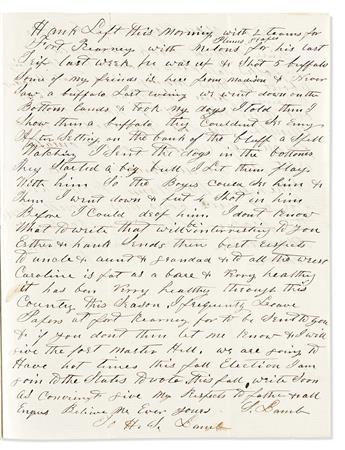 Hank Left this Morning with 2 teams for
Fort Kearney with Melons for his last
trip last week he was up & Shot 5 buffalo
Some of my friends is here from Madison & Never
Saw a buffalo Last evning we went down on the
Bottom Lands & took my dogs I told them I
Show them a buffalo they Couldent See Eny
After Setting on the bank of the bluff a Spell
Watching I Sent the dogs in the bottoms
They Started a big bull I Let them play
With him So the Boys Could See him &
then I went down & put 4 Shot in him
Before I Could drop him I dont Know
What to write that will interesting to you
Esther & hank Sends their best respects
to uncle & aunt & grandad & to all the rest
Caroline is fat as a bare & Verry healthy
it has ben Verry healthy through this
Country this Season I frequently Leave
Papers at fort Kearney for to be Sent to you
& if you dont them let me Know & I will
give the post Master Hell. we are going to
Have hot times this fall Election I am
goin to the States to vote this fall write Soon
As Convenent give My Respects to father & all
Enqus Believe Me Ever yours S. Lamb
To H. W. Lamb